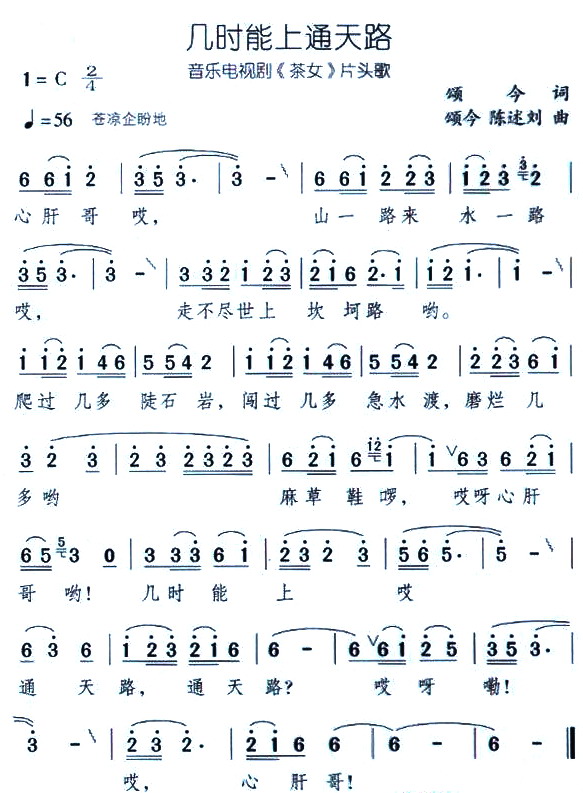 几时能上通天路
音乐电视剧《茶女》片头歌
1=C 2/4
颂 今 词
♩=56 苍凉企盼地
颂今 陈述刘 曲
6 6 6 i 2 | 3 5 3· | 3 - | 6 6 i 2 2 3 | i 2 3 3 2
心肝哥哎， 山一路来 水一路
3 5 3· | 3 - | 3 3 2 i 2 3 | 2 i 6 2· i | i 2 i· | i -
哎， 走不尽世上 坎坷路 哟。
i i 2 i 4 6 | 5 5 4 2 | i i 2 i 4 6 | 5 5 4 2 | 2 2 3 6 i
爬过 几多 陡石 岩，闯过 几多 急水 渡，磨烂 几
3 2 3 | 2 3 2 3 2 3 | 6 2 i 6 i 2 i | i ∨ 6 3 6 2 i
多哟 麻草 鞋啰， 哎呀心肝
6 5 5 3 0 | 3 3 3 6 i | 2 3 2 2 3 | 5 6 5· | 5 -
哥 哟！ 几时 能 上 哎
6 3 6 | i 2 3 2 i 6 | 6 - | 6 ∨ 6 6 i 2 5 | 3 5 3·
通 天 路， 通天路？ 哎 呀 嘞！
3 - | 2 3 2· | 2 i 6 6 | 6 - | 6 -
哎， 心 肝哥！